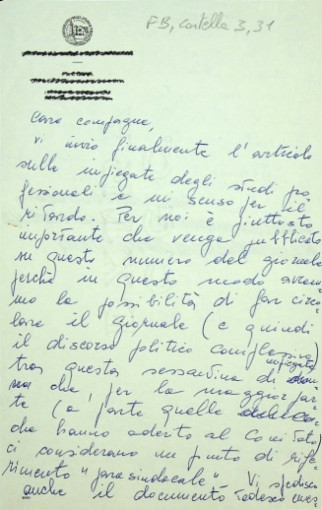 FB, Cartella 3,31
Care compagne,
vi invio finalmente l'articolo
sulle impiegate degli studi pro
fessionali e mi scuso per il
ritardo. Per noi è piuttosto
importante che venga pubblicato
su questo numero del giornale
perché in questo modo avrem
mo la possibilità di far circo
lare il giornale (e quindi
il discorso politico complessivo)
tra questa sessantina di
impiegate
che, per la maggior par
te (a parte quelle
che hanno aderito al Comitato)
ci considerano un punto di rife
rimento "parasindacale". Vi spedisco
anche il documento tedesco